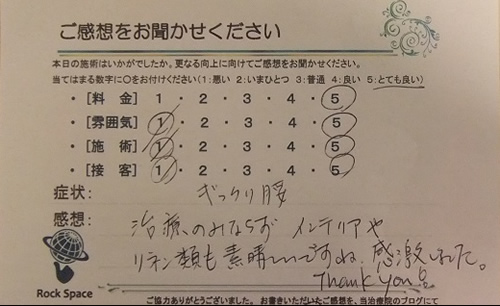 ご感想をお聞かせください
本日の施術はいかがでしたか。更なる向上に向けてご感想をお聞かせください。
当てはまる数字に○をお付けください（1：悪い 2：いまひとつ 3：普通 4：良い 5：とても良い）
・［料 金］ 1 ・ 2 ・ 3 ・ 4 ・ 5
・［雰囲気］ 1 ・ 2 ・ 3 ・ 4 ・ 5
・［施 術］ 1 ・ 2 ・ 3 ・ 4 ・ 5
・［接 客］ 1 ・ 2 ・ 3 ・ 4 ・ 5
症状： ぎっくり腰
感想： 治療のみならず インテリアや
リネン類も素晴しいですね、感激しました。
Thank you
Rock Space
ご協力ありがとうございました。お書きいただいたご感想を、当治療院のブログにて